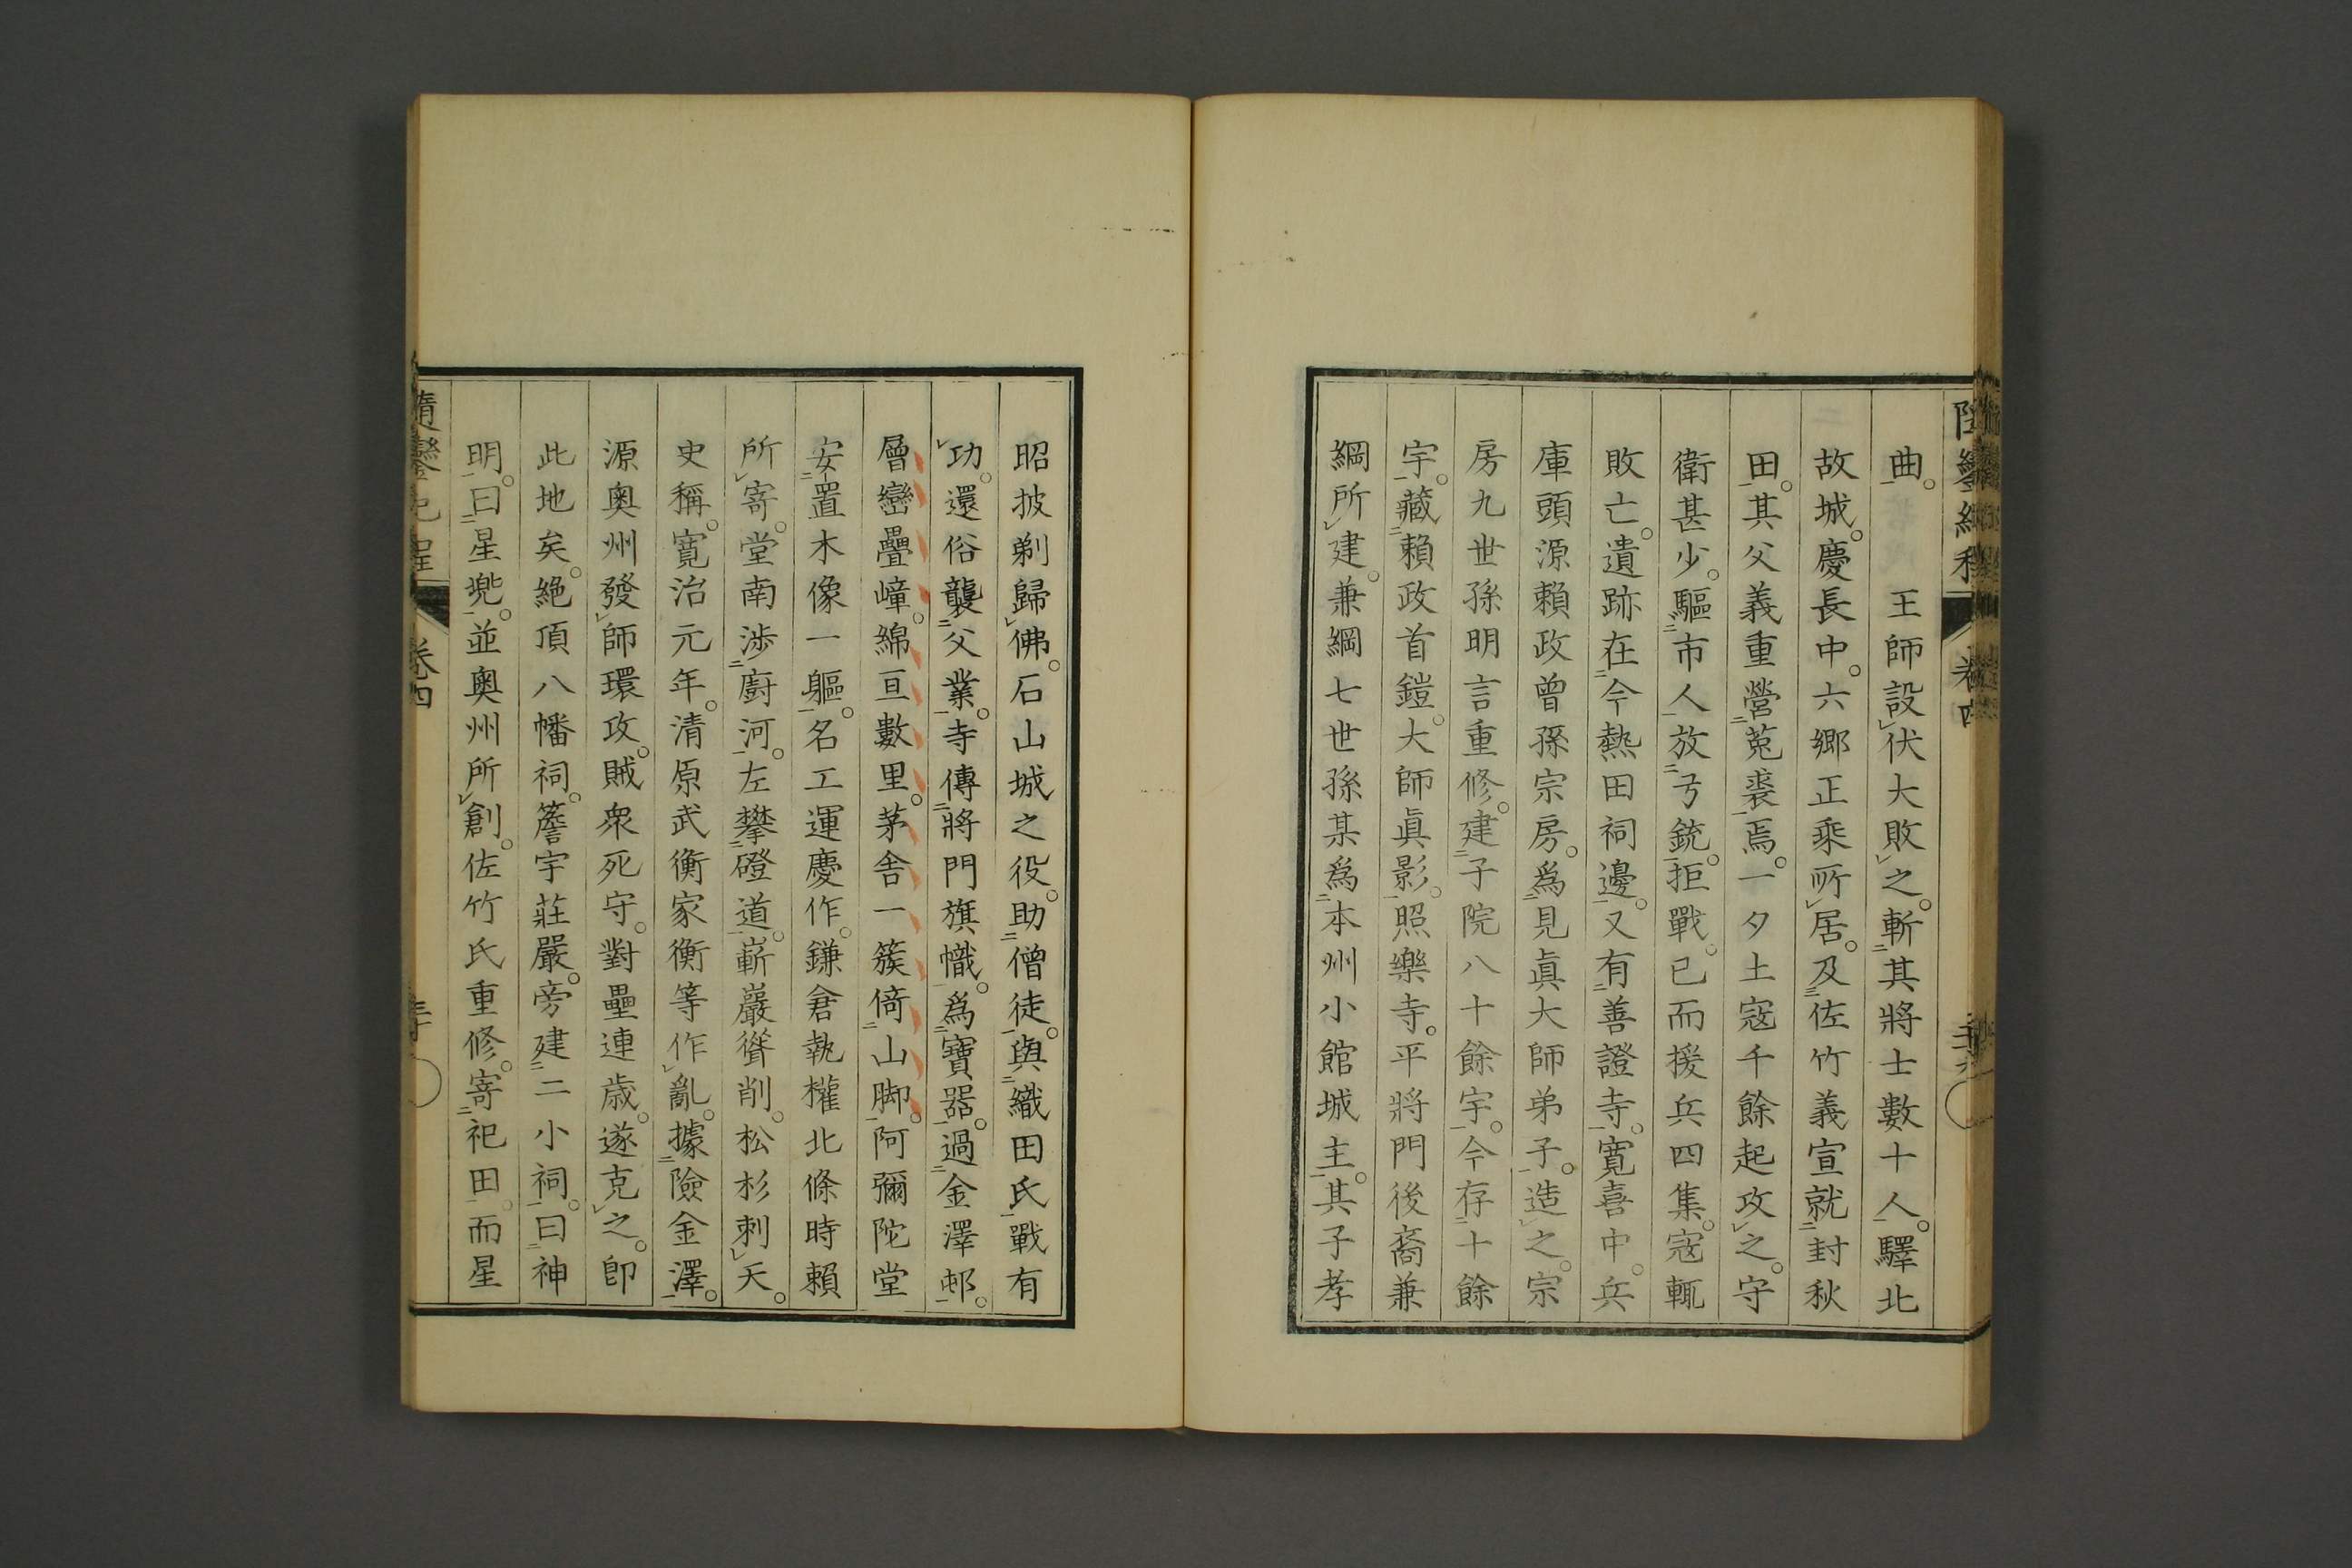 曲。　王師設伏大敗之。斬其將士數十人。驛北
故城。慶長中。六鄉正乘所居。及佐竹義宣就封秋
田。其父義重營菟裘焉。一夕土寇千餘起攻之。守
衛甚少。驅市人放弓銃。拒戰。已而援兵四集。寇輒
敗亡。遺跡在今熱田祠邊。又有善證寺。寬喜中。兵
庫頭源賴政曾孫宗房。爲見眞大師弟子。造之。宗
房九世孫明言重修。建子院八十餘宇。今存十餘
宇。藏賴政首鎧。大師眞影。照樂寺。平將門後裔兼
綱所建。兼綱七世孫某爲本州小館城主。其子孝
昭披剃歸佛。石山城之役。助僧徒。與織田氏戰有
功。還俗襲父業。寺傳將門旗幟。爲寶器。過金澤邨。
層巒疊嶂。綿亘數里。茅舍一簇倚山脚。阿彌陀堂
安置木像一軀。名工運慶作。鎌倉執權北條時賴
所寄。堂南涉廚河。左攀磴道。嶄巖聳削。松杉刺天。
史稱。寬治元年。清原武衡家衡等作亂。據險金澤。
源奧州發師環攻。賊衆死守。對壘連歲。遂克之。卽
此地矣。絶頂八幡祠。簷宇莊嚴。旁建二小祠。曰神
明。曰星兠。並奧州所創。佐竹氏重修。寄祀田。而星
隨鑾紀程
卷四